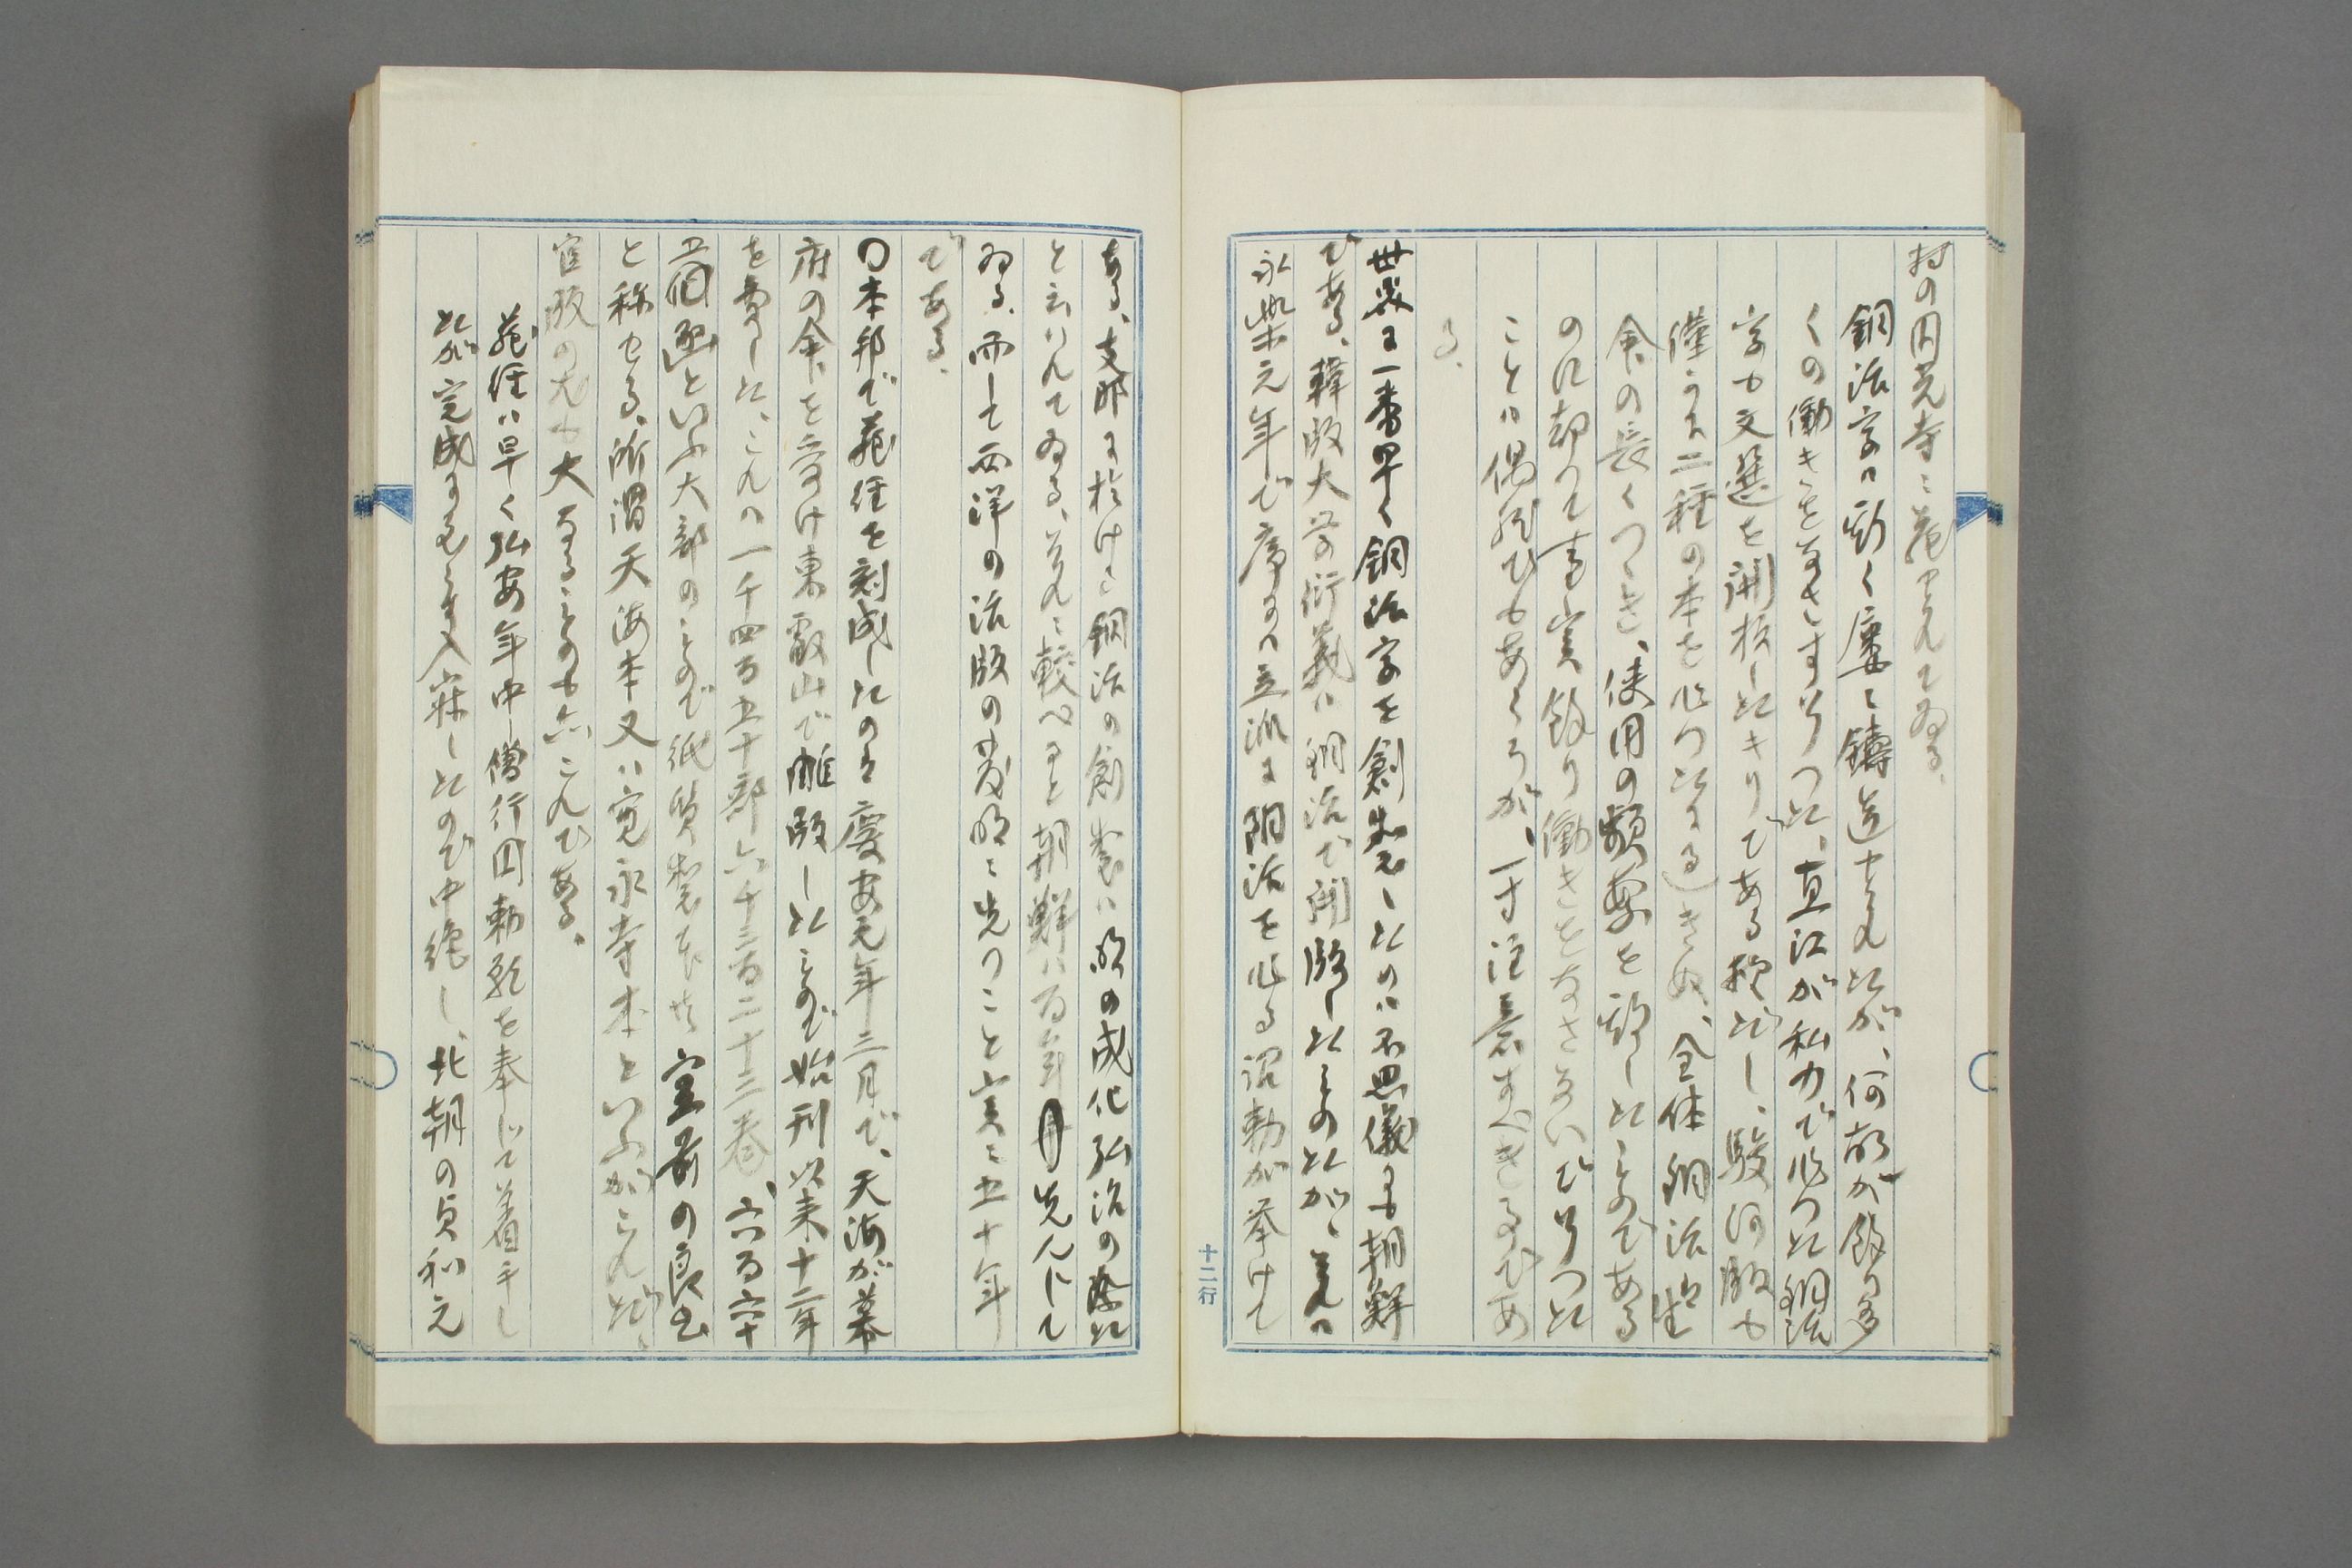 村の円光寺に蔵されてゐる、
銅活字は斯く屢々鋳造されたが、何故か余り多
くの働きをなさずヿつた、直江が私力で作つた銅活
字も文選を開板したキリである様だし、駿河版も
僅かに二種の本を作つたに過ぎぬ、全体銅活は生
命の長くつゞき、使用の頻繁を期したものである
のに却つて事実余り働きをなさないでヿつた
ことは偶然でもあらうが、一寸注意すべき事であ
る、
世界に一番早く銅活字を創製したのは不思儀にも朝鮮
である、韓版大学衍義は銅活で開版したものだが、それは
永楽元年で序には立派に銅活を作る詔勅が挙げて
ある、支那に於ける銅活の創製は明の成化弘治の際だ
と云はれてゐる、それに較べると朝鮮は百年も先んじて
ゐる、而して西洋の活版の発明に先つこと実に五十年
である、
〇本邦で蔵経を刻成したのは慶安元年三月で、天海が幕
府の命を受け東叡山で雕版したもので始刊以来十二年
を費した、これは一千四百五十部六千三百二十三巻、六百六十
五函といふ大部のもので紙質製本共空前の良出
と称せる、所謂天海本又は寛永寺本といふがこれだ、
官版の尤も大なるものも亦これである、
蔵経は早く弘安年中僧行円勅願を奉じて着手し
たが完成するに至らず入寂したので中絶し、北朝の貞和元
十二行